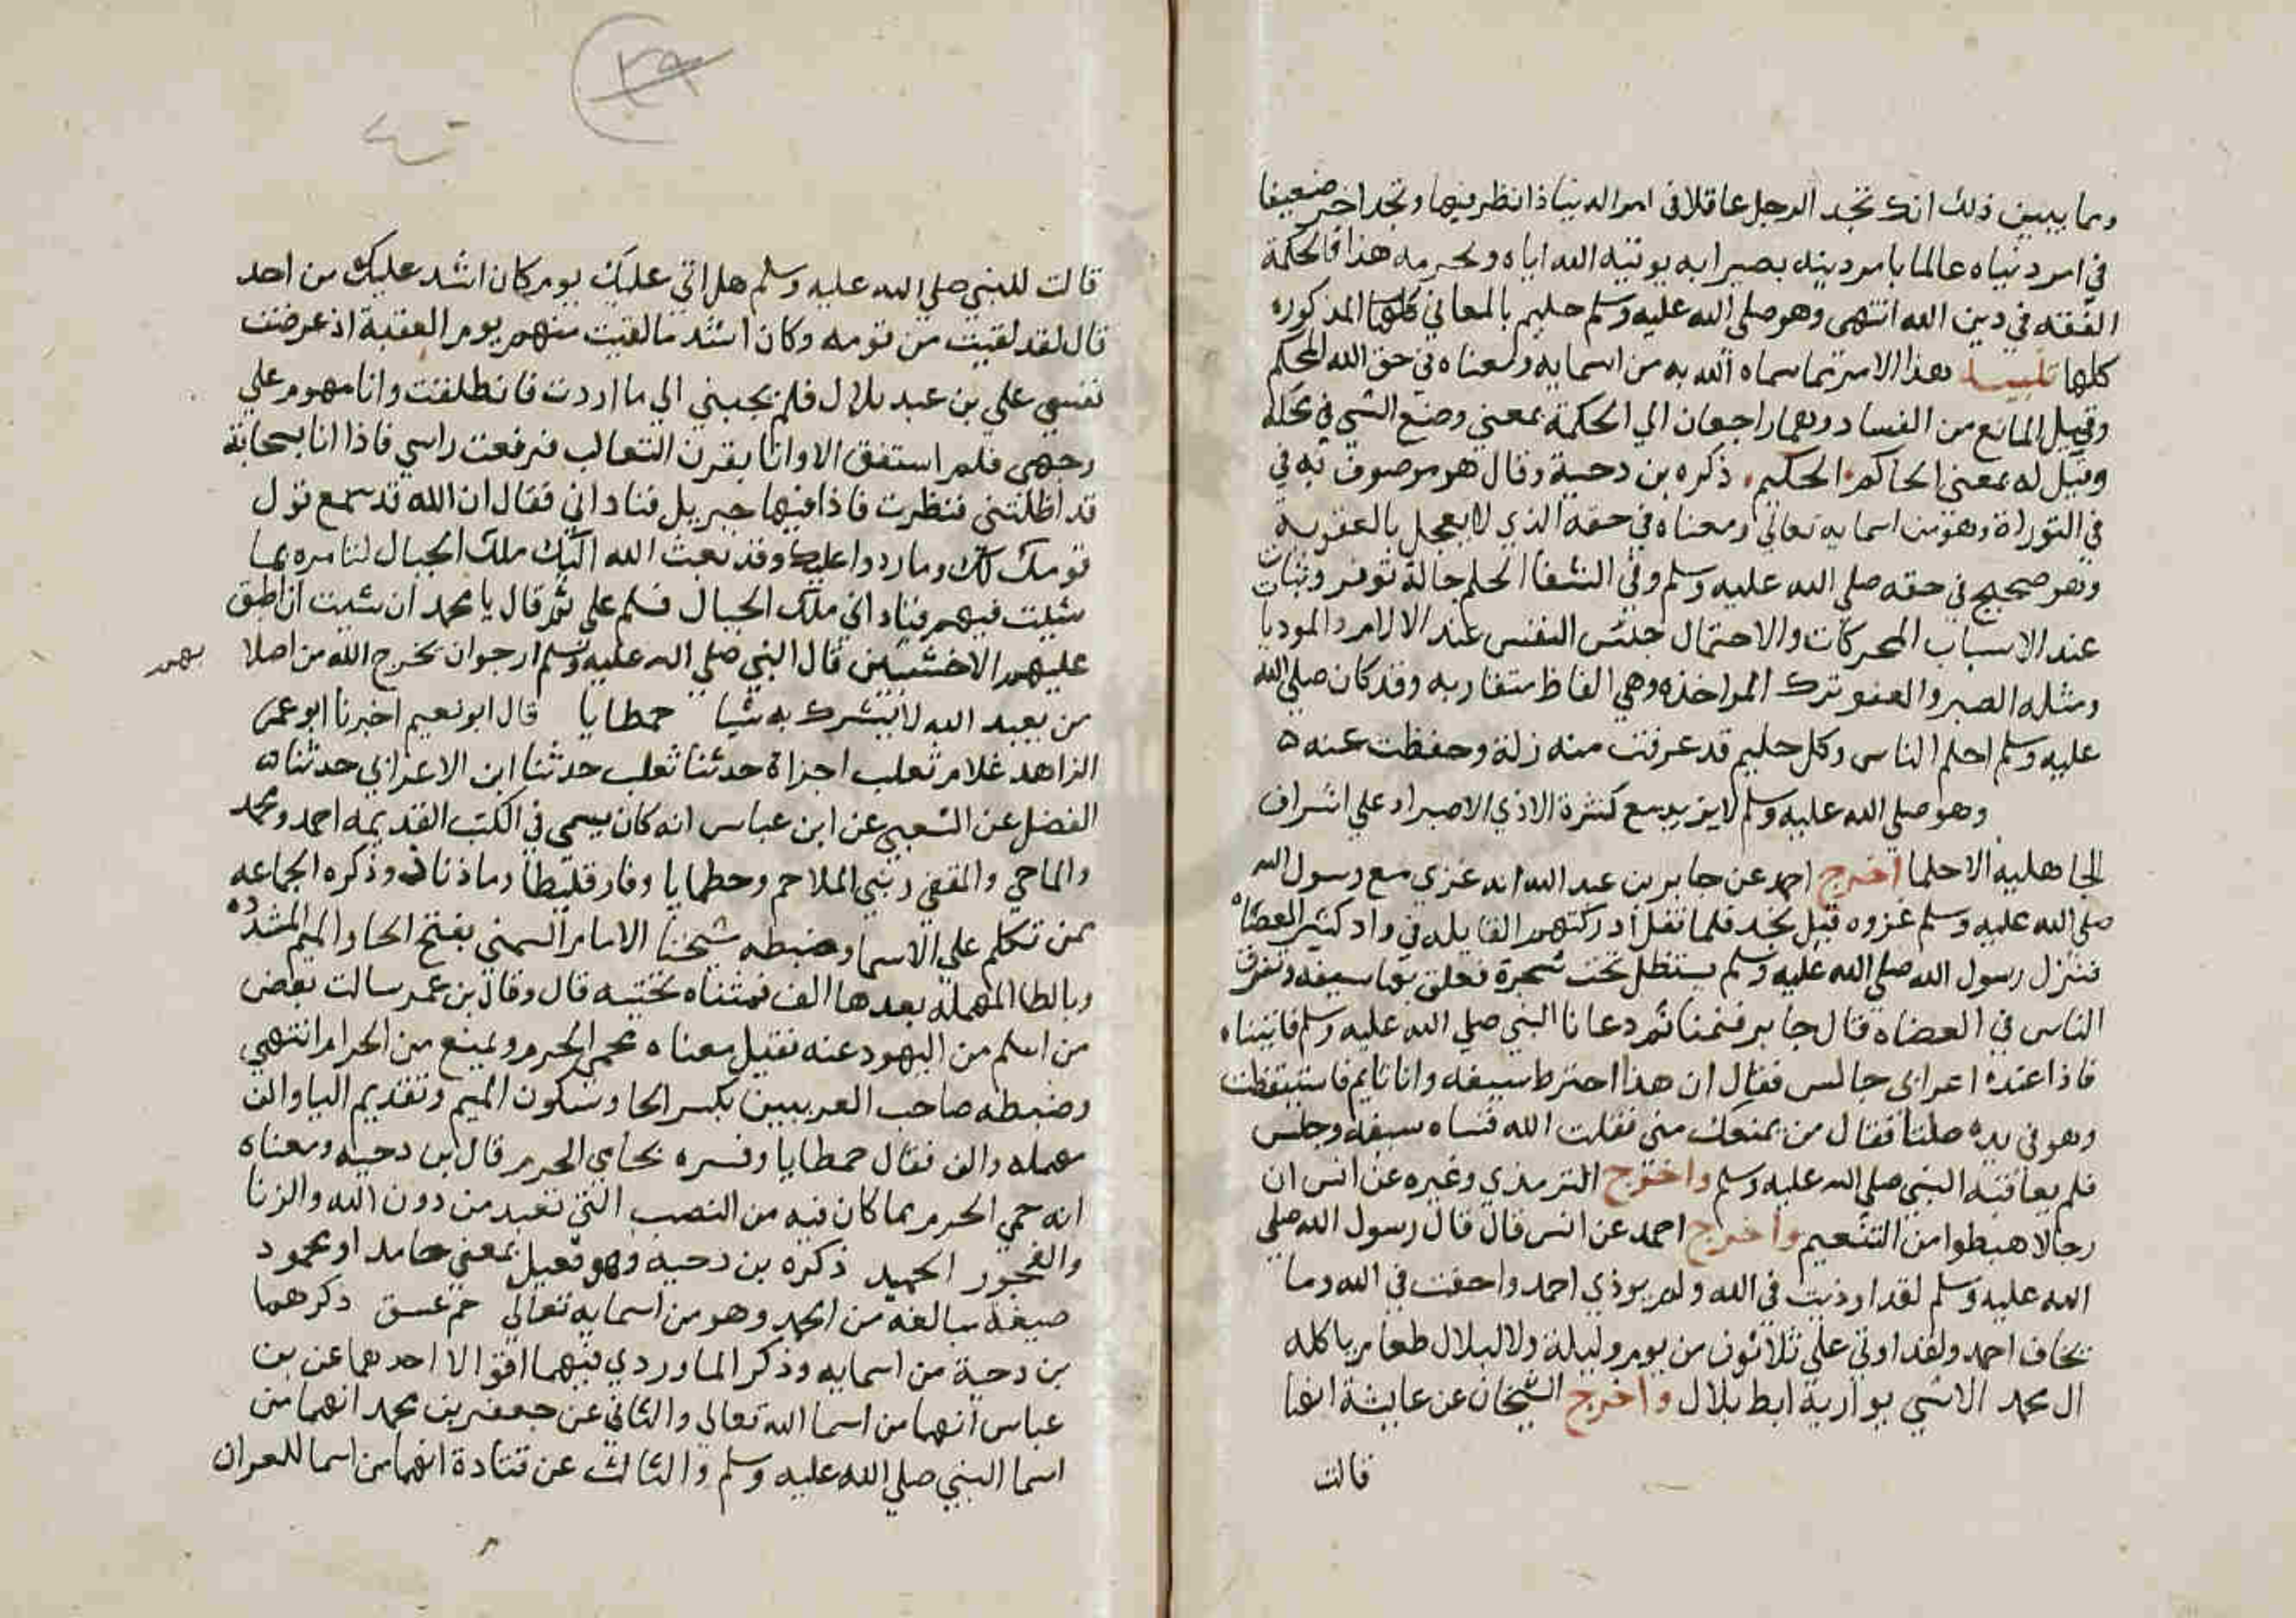 ومما يبين ذلك انك تجد الرجل عاقلا في امر الدنيا ذا نظر فيها وتجد اخر ضعيفا
في امر دنياه عالما بامر دينه بصيرا به يوتيه الله اياه ويحرمه هذا فالحكمة
الفقه في دين الله انتهى وهو صلى الله عليه وسلم حليم بالمعاني كلها المذكوره
كلها هذا الاسم مما سماه الله به من اسمايه ومعناه في حق الله المحكم
وقيل المانع من الفساد وهما راجعان الي الحكمة بمعني وضع الشي في محله
وقيل له بمعنى الحاكم الحكيم ذكره بن دحية وقال هو موصوف به في
في التوراة وهو من اسمايه تعالي ومعناه في حقه الذي لا يعجل بالعقوبة
وهو صحيح في حقه صلى الله عليه وسلم وفي الشفا الحلم حالة توقر وثبات
عند الاسباب المحركات والاحتمال حبس النفس عند الالام والموديا
ومثله الصبر والعفو ترك المواخذه وهي الفاظ متقاربه وقد كان صلى الله
عليه وسلم احلم الناس وكل حليم قد عرفت منه زلة وحفظت عنه ه
وهو صلى الله عليه وسلم لا يزيد مع كثرة الاذي الا صبرا وعلي اشراف
الجاهلية الا حلما اخرج احمد عن جابر بن عبد الله انه غزي مع رسول الله
صلى الله عليه وسلم غزوه قبل نجد فلما قفل ادركتهم القايله في واد كثير العضاه
فنزل رسول الله صلى الله عليه وسلم يستظل تحت شجرة فعلق بها سيفه وتفرق
الناس في العضاه قال جابر فنمنا ثم دعانا النبي صلى الله عليه وسلم فاتيناه
فاذا عنده اعرابي جالس فقال ان هذا اخترط سيفه وانا نايم فاستيقظت
وهو في يده صلتا فقال من يمنعك مني فقلت الله فشاه سيفه وجلس
فلم يعاقبه النبي صلى الله عليه وسلم واخرج الترمذي وغيره عن انس ان
رجالا هبطوا من التنعيم واخرج احمد عن انس قال قال رسول الله صلى
الله عليه وسلم لقد اوذيت في الله ولم يوذي احمد واخفت في الله وما
يخاف احمد ولقد اوتي علي ثلاثون من يوم وليلة ولا لبلال طعام ياكله
ال محمد الا شي يواريه ابط بلال واخرج الشيخان عن عايشة انها
قالت
٣٩
قالت للنبي صلى الله عليه وسلم هل اتي عليك يوم كان اشد عليك من احد
قال لقد لقيت من قومه وكان اشد ما لقيت منهم يوم العقبة اذ عرضت
نفسي علي بن عبد بلال فلم يجبني الي ما اردت فانطلقت وانا مهموم علي
وجهي فلم استفق الا وانا بقرن الثعالب فرفعت راسي فاذا انا بسحابة
قد اظلتني فنظرت فاذا فيها جبريل فناداني فقال ان الله قد سمع قول
قومك لك وما ردوا عليك وقد بعث الله اليك ملك الجبال لتامره بما
شيت فيهم فناداني ملك الجبال فسلم علي ثم قال يا محمد ان شيت ان اطبق
عليهم الاخشبين قال النبي صلى الله عليه وسلم ارجوان يخرج الله من اصلا بهم
من يعبد الله لا يشرك به شيا حمطايا قال ابو نعيم اخبرنا ابو عمر
الزاهد غلام ثعلب اجزاة حدثنا ثعلب حدثنا ابن الاعرابي حدثنا
الفضل عن الشعبي عن ابن عباس انه كان يسمى في الكتب القديمه احمد ومحمد
والماحي والمقفي ونبي الملاحم وحطمايا وفارقليطا وماذناذ وذكره الجماعه
ممن تكلم علي الاسما وضبطه شيخنا الامام الشمني بفتح الحا والميم المشدده
وبالطا المهملة بعدها الف فمثناه تحتيه قال وقال بن عمر سالت بعض
من اسلم من اليهود عنه فقيل معناه يحمي الحرم ويمنع من الحرام انتهي
وضبطه صاحب الغريبين بكسر الحا وسكون الميم وتقديم اليا والف
مهملة والف فقال حمطايا وفسره بحامي الحرم قال بن دحيه ومعناه
انه حمي الحرم مما كان فيه من النصب التي تعبد من دون الله والزنا
والفجور الحميد ذكره بن دحيه وهو فعيل بمعني حامد او محمود
صيغة مبالغة من الحمد وهو من اسمايه تعالي حم عسق ذكرهما
بن دحية من اسمايه وذكر الماوردي فيهما اقوالا احدهما عن بن
عباس انهما من اسما الله تعالي والثاني عن جعفر بن محمد انهما من
اسما النبي صلى الله عليه وسلم والثالث عن قتادة انهما من اسما للعران